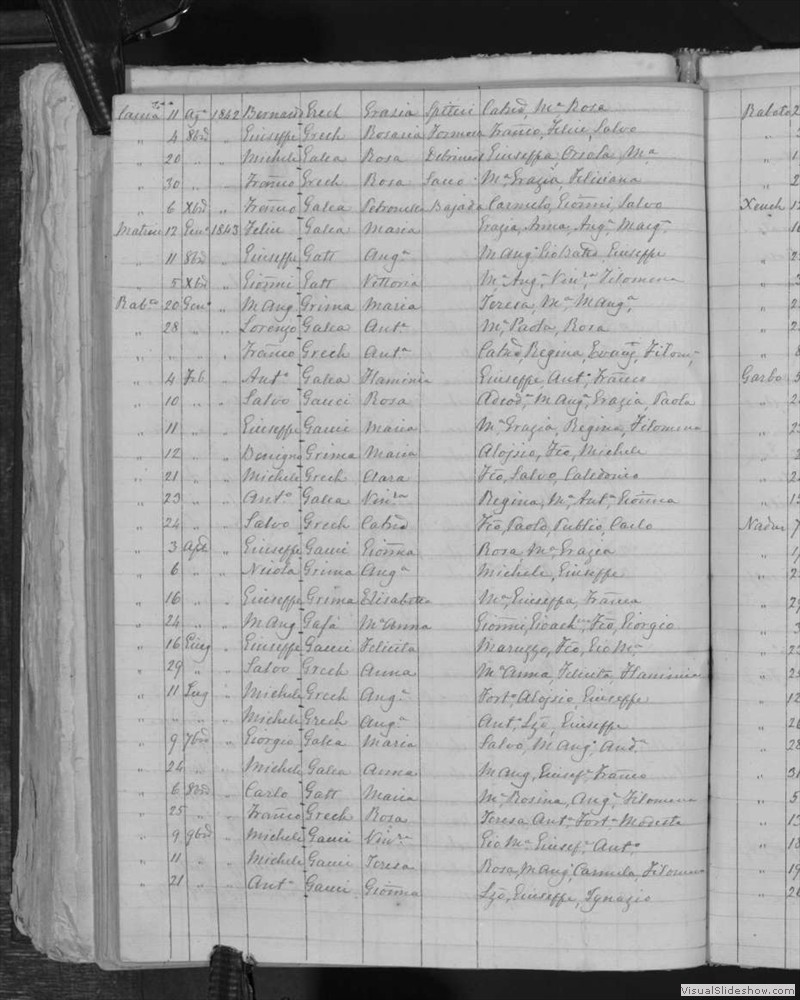 11 Ag. 1842 Bernardo Grech Grazia Spiteri Cated, Ma Rosa
" 4 8bre " Giuseppe Grech Rosaria Formosa Franco, Felice, Salvo
" 20 " " Michele Galea Rosa Giuseppa, Orsola, Ma
" 30 " " Franco Grech Rosa Ma Grazia, Feliciana
" 6 Xbre " Franco Galea Petronilla Bajada Carmelo, Gionni, Salvo
12 Gen 1843 Felice Galea Maria Grazia, Anna, Anga
" 11 8bre " Giuseppe Gatt Anga M Ang Giobatta, Giuseppe
" 5 Xbre " Gionni Gatt Vittoria Ma Anga, Filomena
Raba 20 Geno " M Ang Grima Maria Teresa, Ma, M Anga
" 28 " " Lorenzo Galea Anta Ma Paola, Rosa
" " " " Franco Grech Anta Regina,
" 4 Feb " Anto Galea Flaminia Giuseppe, Anto, Franco
" 10 " " Salvo Gauci Rosa M Ang, Grazia, Paola
" 11 " " Giuseppe Gauci Maria Ma Grazia, Regina, Filomena
" 12 " " Benigno Grima Maria Alojsio, Fco, Michele
" 21 " " Michele Grech Clara Fco, Salvo, Calcedonio
" 23 " " Anto Galea Regina, Ma, Anta, Gionna
" 24 " " Salvo Grech Fco, Paolo, Publio, Carlo
" 3 Aple " Giuseppe Gauci Gionna Rosa, Ma Grazia
" 6 " " Nicola Grima Anga Michele, Giuseppe
" 16 " " Giuseppe Grima Elisabetta Ma, Giuseppa, Franca
" 24 " " M Ang Gafà Ma Anna Gionni, Gioachno, Fco, Giorgio
" 16 Giug " Giuseppe Gauci Felicita Maruzzo, Fco, Gio Ma
" 29 " " Salvo Grech Anna Ma Anna, Felicita, Flaminia
" 11 Lug " Michele Grech Anga Forto, Alojsio, Giuseppe
" " " " Michele Grech Anga Anto, Lzo, Giuseppe
" 9 7bre " Giorgio Galea Maria Salvo, M Ang, Anda
" 24 " " Michele Galea Anna M Ang, Giusepa, Franco
" 6 8bre " Carlo Gatt Maria Ma Rosina, Anga, Filomena
" 25 " " Franco Grech Rosa Teresa, Anto, Forto, Modesto
" 9 9bre " Michele Gauci Gio Ma, Giusepe, Anto
" 11 " " Michele Gauci Teresa Rosa, M Anga, Carmela, Filomena
" 21 " " Anto Gauci Gionna Lzo, Giuseppe, Ignazio
Rabato
Xeuch
Garbo
Nadur
VisualSlideshow.com